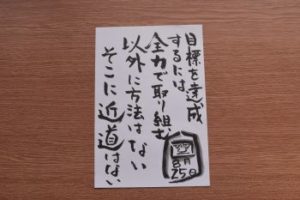 目標を達成
するには
全力で取り組む
以外に方法はない
そこに近道はない
8月
25日